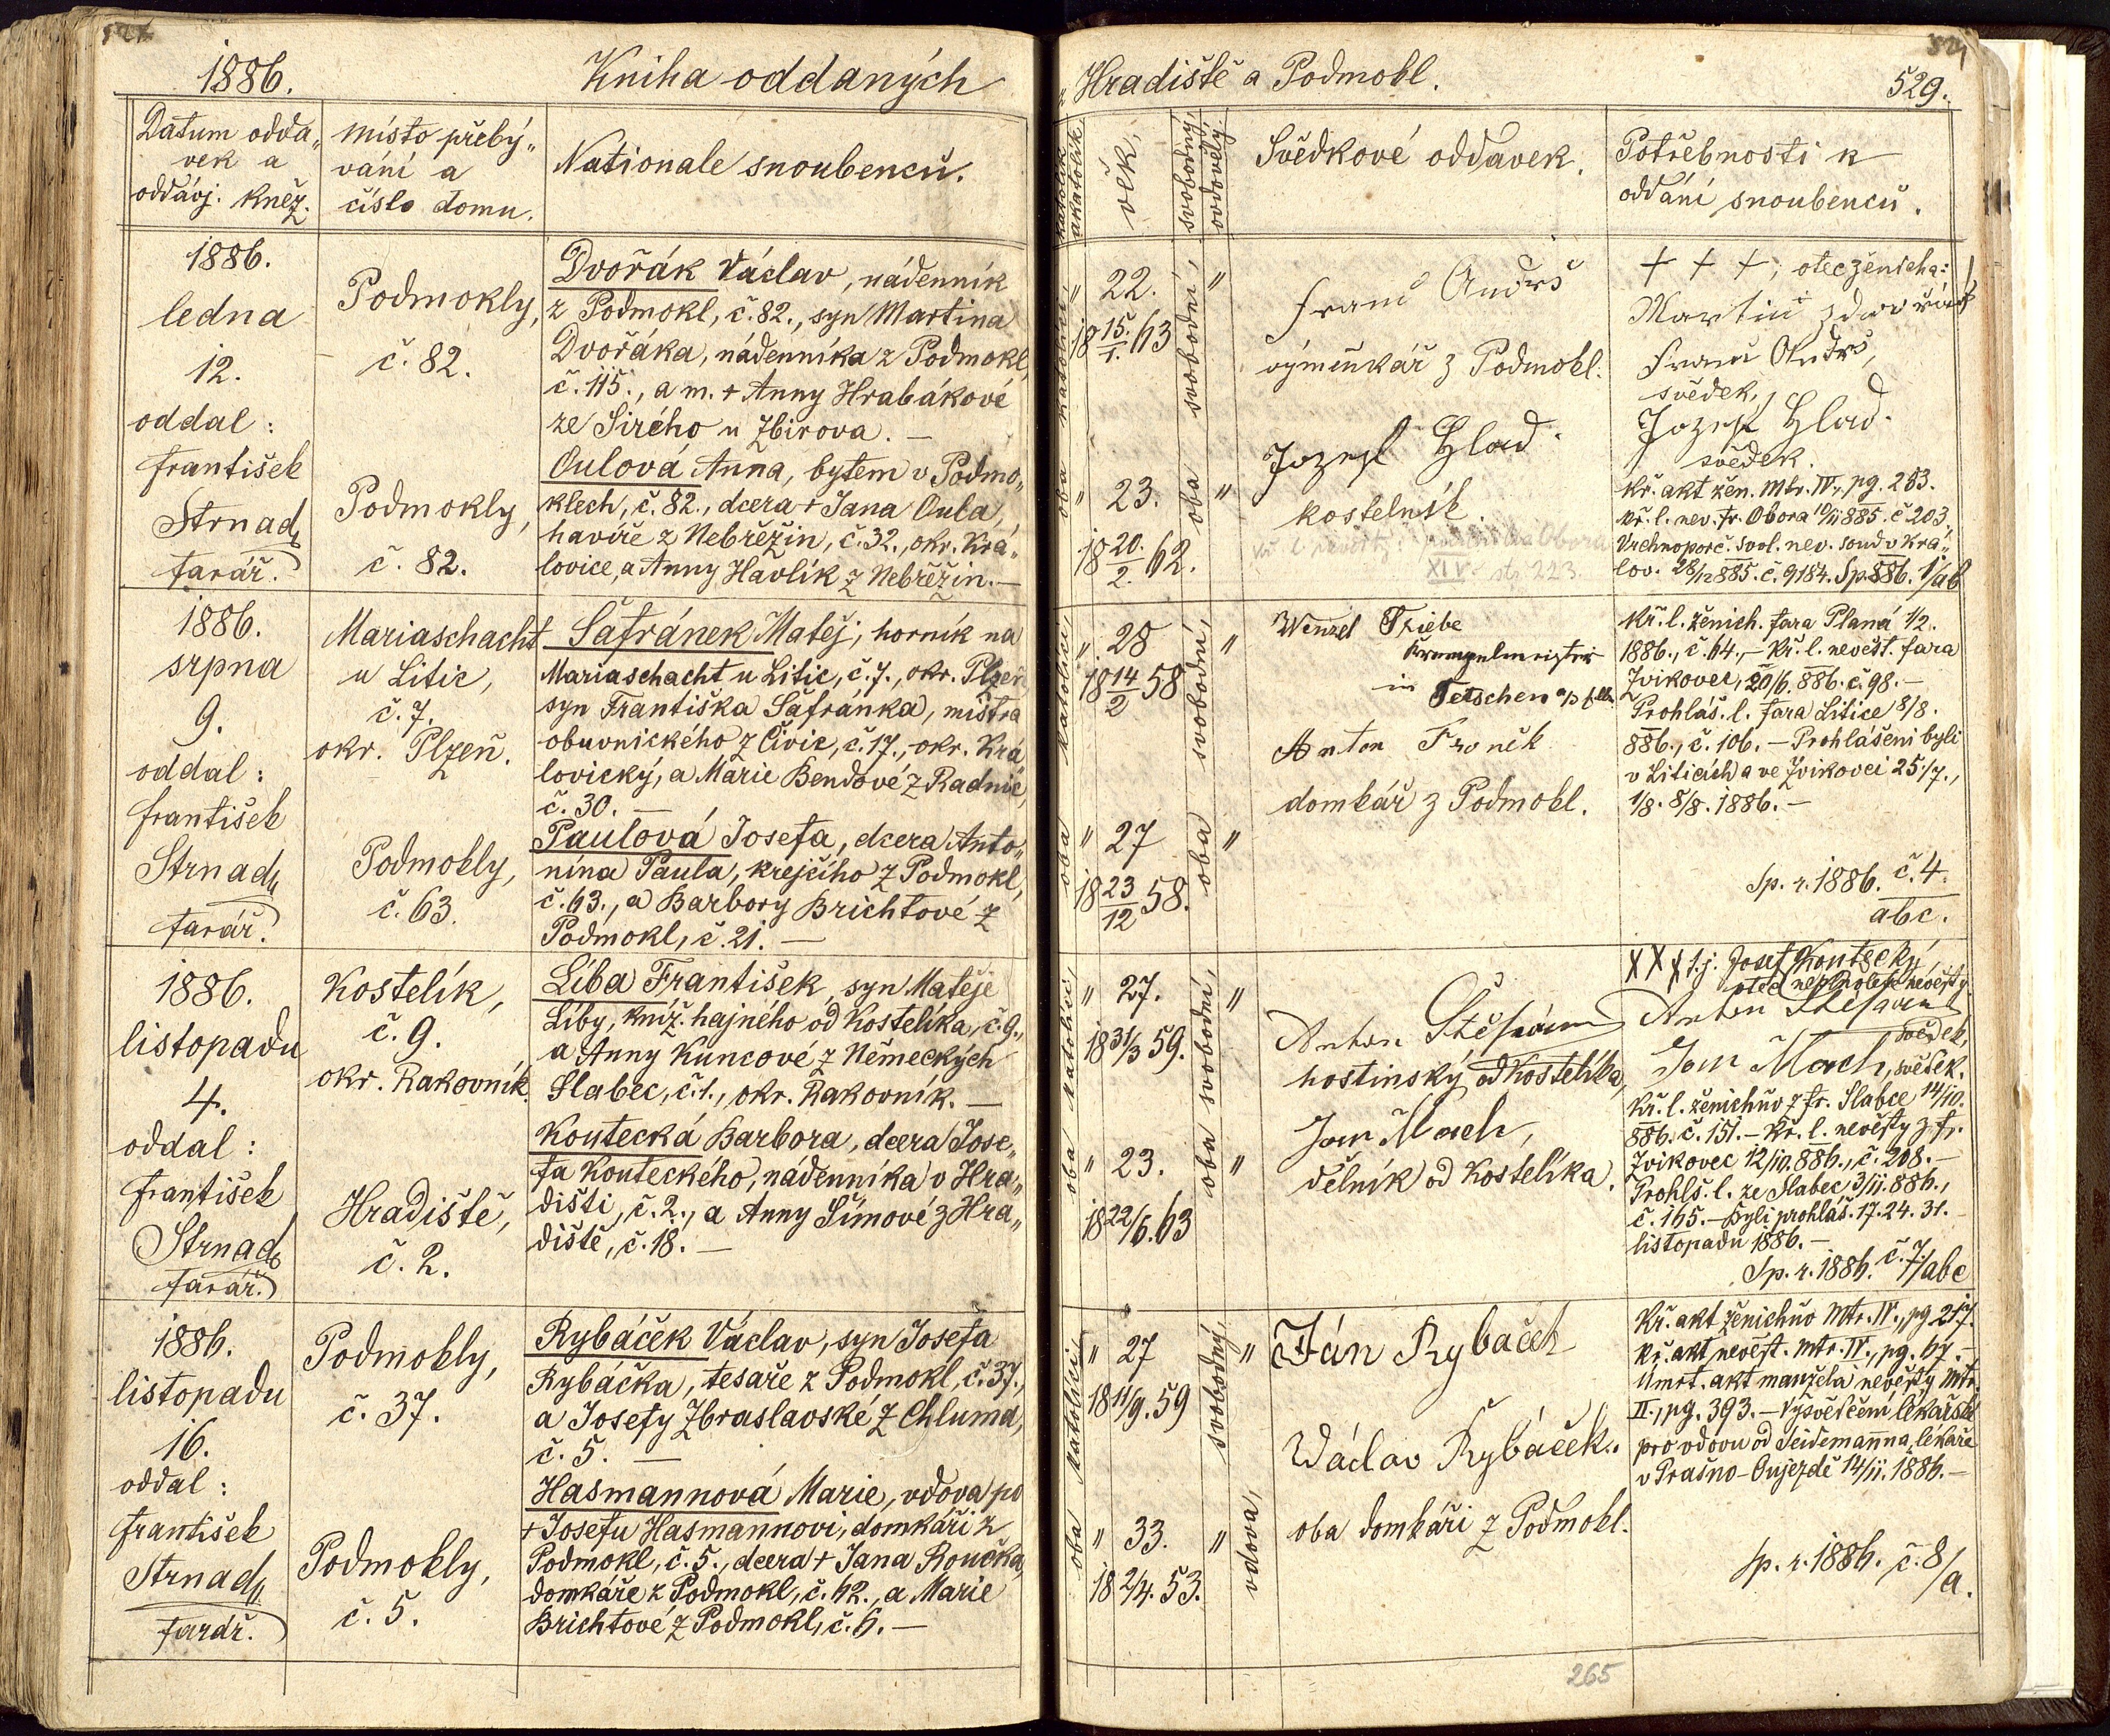 1886.
Kniha oddaných
Datum odda„
vek a
oddávj. kněz.
místo přebý„
vání a
číslo domu.
Nationale snoubenců.
1886.
ledna
12.
oddal:
František
Strnad,
farář.
Podmokly,
č. 82.
Podmokly,
č. 82.
Dvořák Václav, nádenník
z Podmokl, č. 82., syn Martina
Dvořáka, nádenníka z Podmokl,
č. 115., a m. + Anny Hrabákové
ze Sirého u Zbirova. —
Oulová Anna, bytem v Podmo„
klech, č. 82., dcera + Jana Oula,
havíře z Nebřežin, č. 32., okr. Krá„
lovice, a Anny Havlík z Nebřežin. —
1886.
srpna
9.
oddal:
František
Strnad,
farář.
Mariaschacht
u Litic,
č. 7.
okr. Plzeň.
Podmokly,
č. 63.
Šafránek Matěj, horník na
Mariaschacht u Litic, č. 7., okr. Plzeň,
syn Františka Šafránka, mistra
obuvnického z Čivic, č. 17., okr. Krá
lovický, a Marie Bendové z Radnic,
č. 30. —
Paulová Josefa, dcera Anto„
nína Paula, krejčího z Podmokl,
č. 63., a Barbory Brichtové z
Podmokl, č. 21. —
1886.
listopadu
4.
oddal:
František
Strnad,
farář.
Kostelík,
č. 9.
okr. Rakovník.
Hradiště,
č. 2.
Líba František, syn Matěje
Líby, kníž. hajného od Kostelíka, č. 9.,
a Anny Kuncové z Německých
Slabec, č. 1., okr. Rakovník. —
Koutecká Barbora, dcera Jose„
fa Kouteckého, nádenníka v Hra„
dišti, č. 2., a Anny Šímové z Hra„
diště, č. 18. —
1886.
listopadu
16.
oddal:
František
Strnad,
farář.
Podmokly,
č. 37.
Podmokly,
č. 5.
Rybáček Václav, syn Josefa
Rybáčka, tesaře z Podmokl, č. 37.,
a Josefy Zbraslavské z Chluma,
č. 5. —
Hasmannová Marie, vdova po
+ Josefu Hasmannovi, domkáři z
Podmokl, č. 5., dcera + Jana Roučka,
domkáře z Podmokl, č. 62., a Marie
Brichtové z Podmokl, č. 6. —
„Hradiště a Podmokl.
529.
katolík
akatolík
věk,
svobodný,
ovdovělý
Svědkové oddavek.
Potřebnosti k
oddání snoubenců.
oba katolíci,
" 22.
18 15./1. 63
" 23.
18 20./2. 62.
oba svobodní,
Franc Andrs
výmenkář z Podmokl.
Jozef Hlad
kostelník.
+ + +, otec ženicha:
Martin
Franc Andrs,
svědek,
Jozef Hlad
svědek.
Kř. akt žen. Mtr. IV., pg. 253.
Kř. l. nev. fr. Obora 10/11 885. č 203.
Vrchnoporč. svol. nev. soud v Krá„
lov. 28/12 885. č. 9184. Sp. 886. 1/ab
oba katolíci,
" 28
18 14/2 58
" 27
18 23/12 58.
oba svobodní,
Wenzel Triebe
in Tetschen a/
Anton Froněk
domkář z Podmokl.
Kř. l. ženich. fara Planá 1/2.
1886., č. 64., — Kř. l. nevěst. fara
Zvíkovec, 20/6. 886. č. 98. —
Prohláš. l. fara Litice 8/8.
886., č. 106. — Prohlášeni byli
v Liticích a ve Zvíkovci 25/7.,
1/8. 8/8. 1886. —
Sp. r. 1886. č. 4.
abc.
oba katolíci,
" 27.
18 31/3 59.
" 23.
18 22/6. 63
oba svobodní,
Anton
hostinský od Kostelíka,
Jan Mach,
dělník od Kostelíka.
X X X t.j. Josef Koutecký,
otec nevěsty
Anton
svědek,
Jan Mach, svědek.
Kř. l. ženichův z fr. Slabce 14/10.
886. č. 151. — Kř. l. nevěsty z fr.
Zvíkovec 12/10. 886., č. 208. —
Prohlš. l. ze Slabec 3/11. 886.,
č. 165. — Byli prohláš. 17. 24. 31.
listopadu 1886. —
Sp. r. 1886. č. 7./abc
oba katolíci,
" 27
18 11/9. 59
" 33.
18 2/4. 53.
svobodný,
vdova,
Ján Rybaček
Wáclav Rybáček.
oba domkáři z Podmokl.
Kř. akt ženichův Mtr. IV., pg 217.
Kř. akt nevěst. Mtr. IV., pg. 67. —
Úmrt. akt manžela nevěsty Mtr.
II., pg. 393. — Vysvědčení lékařské
pro vdovu od Seidemanna, lékaře
v Prašno-Oujezdě 14/11. 1886. —
Sp. r. 1886. č. 8/a.
265